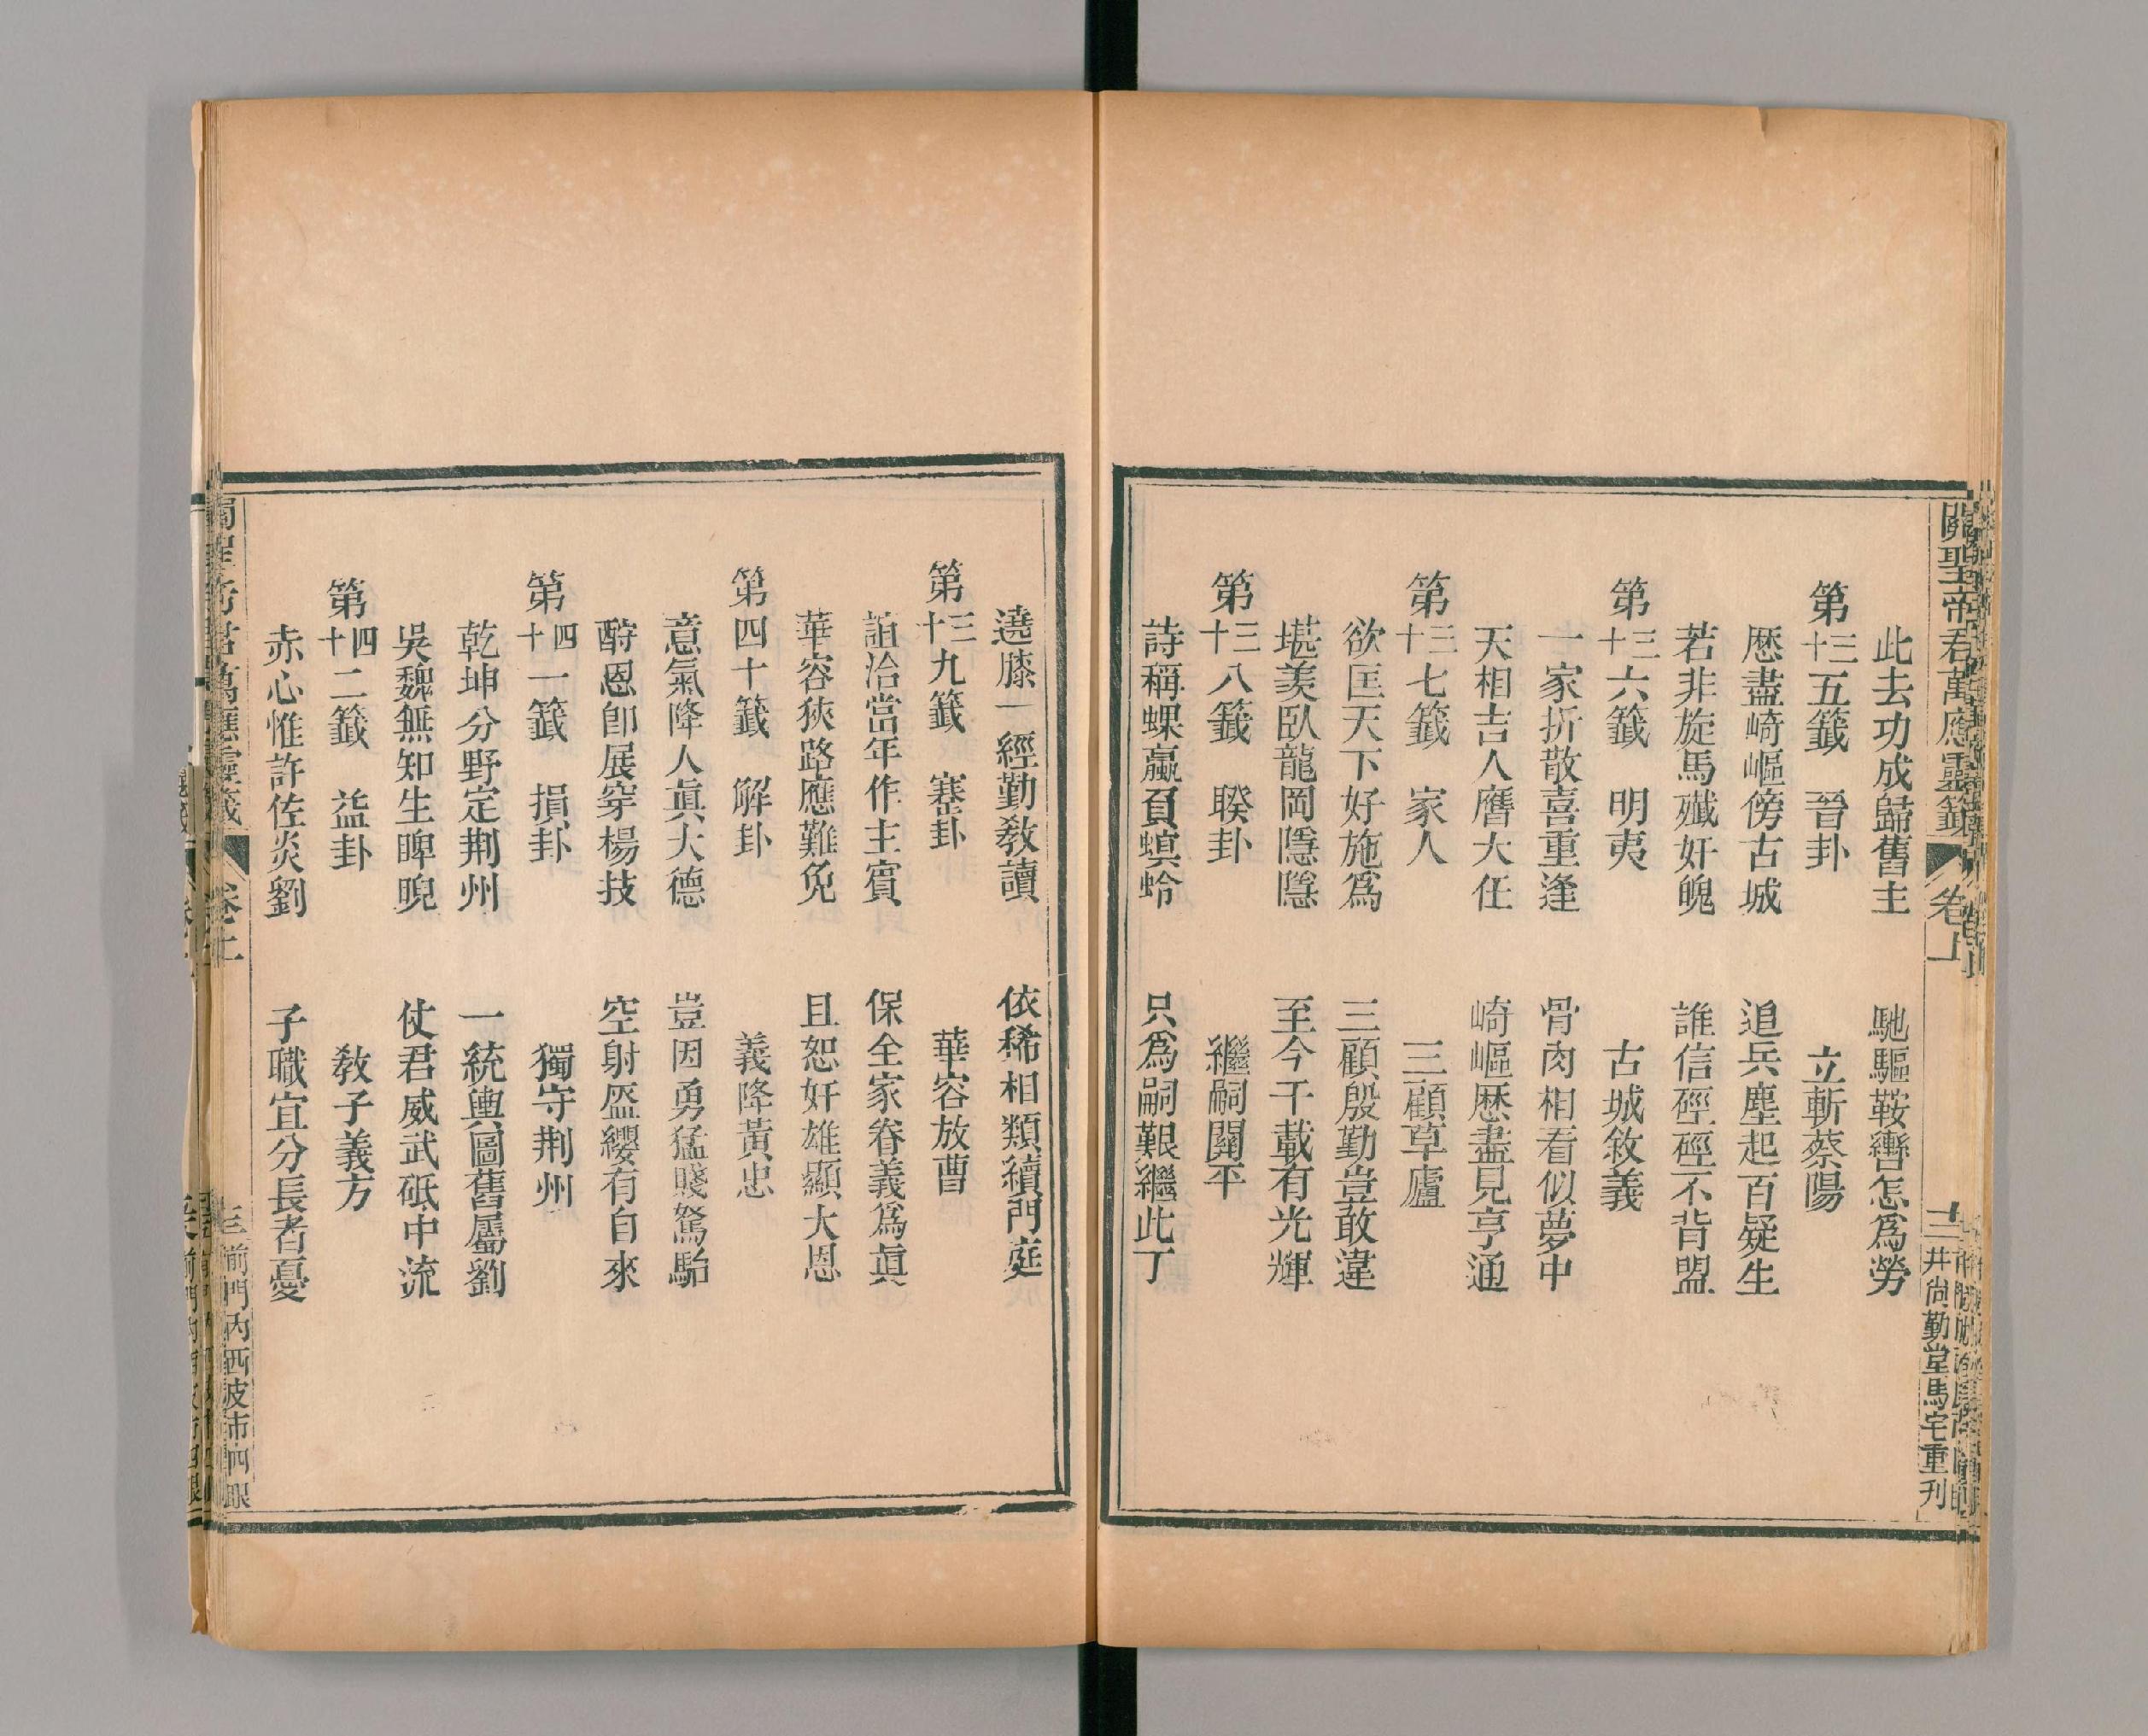 關聖帝君萬應靈籤 卷上 十二 井尚勤堂馬宅重刊
此去功成歸舊主 馳驅鞍轡怎爲勞
第三十五籤 晉卦 立斬蔡陽
歷盡崎嶇傍古城 追兵塵起百疑生
若非旋馬殲奸魄 誰信硜硜不背盟
第三十六籤 明夷 古城敘義
一家折散喜重逢 骨肉相看似夢中
天相吉人膺大任 崎嶇歷盡見亨通
第三十七籤 家人 三顧草廬
欲匡天下好施爲 三顧殷勤豈敢違
堪羨臥龍岡隱隱 至今千載有光輝
第三十八籤 睽卦 繼嗣關平
詩稱蜾蠃負螟蛉 只爲嗣艱繼此丁
遶膝一經勤敎讀 依稀相類續門庭
第三十九籤 蹇卦 華容放曹
誼洽當年作主賓 保全家眷義爲眞
華容狹路應難免 且恕奸雄顯大恩
第四十籤 解卦 義降黃忠
意氣降人眞大德 豈因勇猛賤駑駘
酧恩卽展穿楊技 空射盔纓有自來
第四十一籤 損卦 獨守荆州
乾坤分野定荆州 一統輿圖舊屬劉
吳魏無知生睥睨 仗君威武砥中流
第四十二籤 益卦 敎子義方
赤心惟許佐炎劉 子職宜分長者憂
關聖帝君萬應靈籤 卷上 三 前門內西皮市四眼